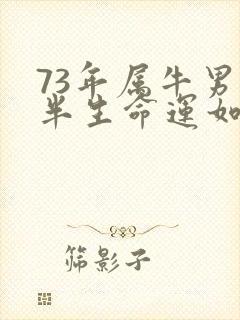 73年属牛男
半生命運如
筛影子